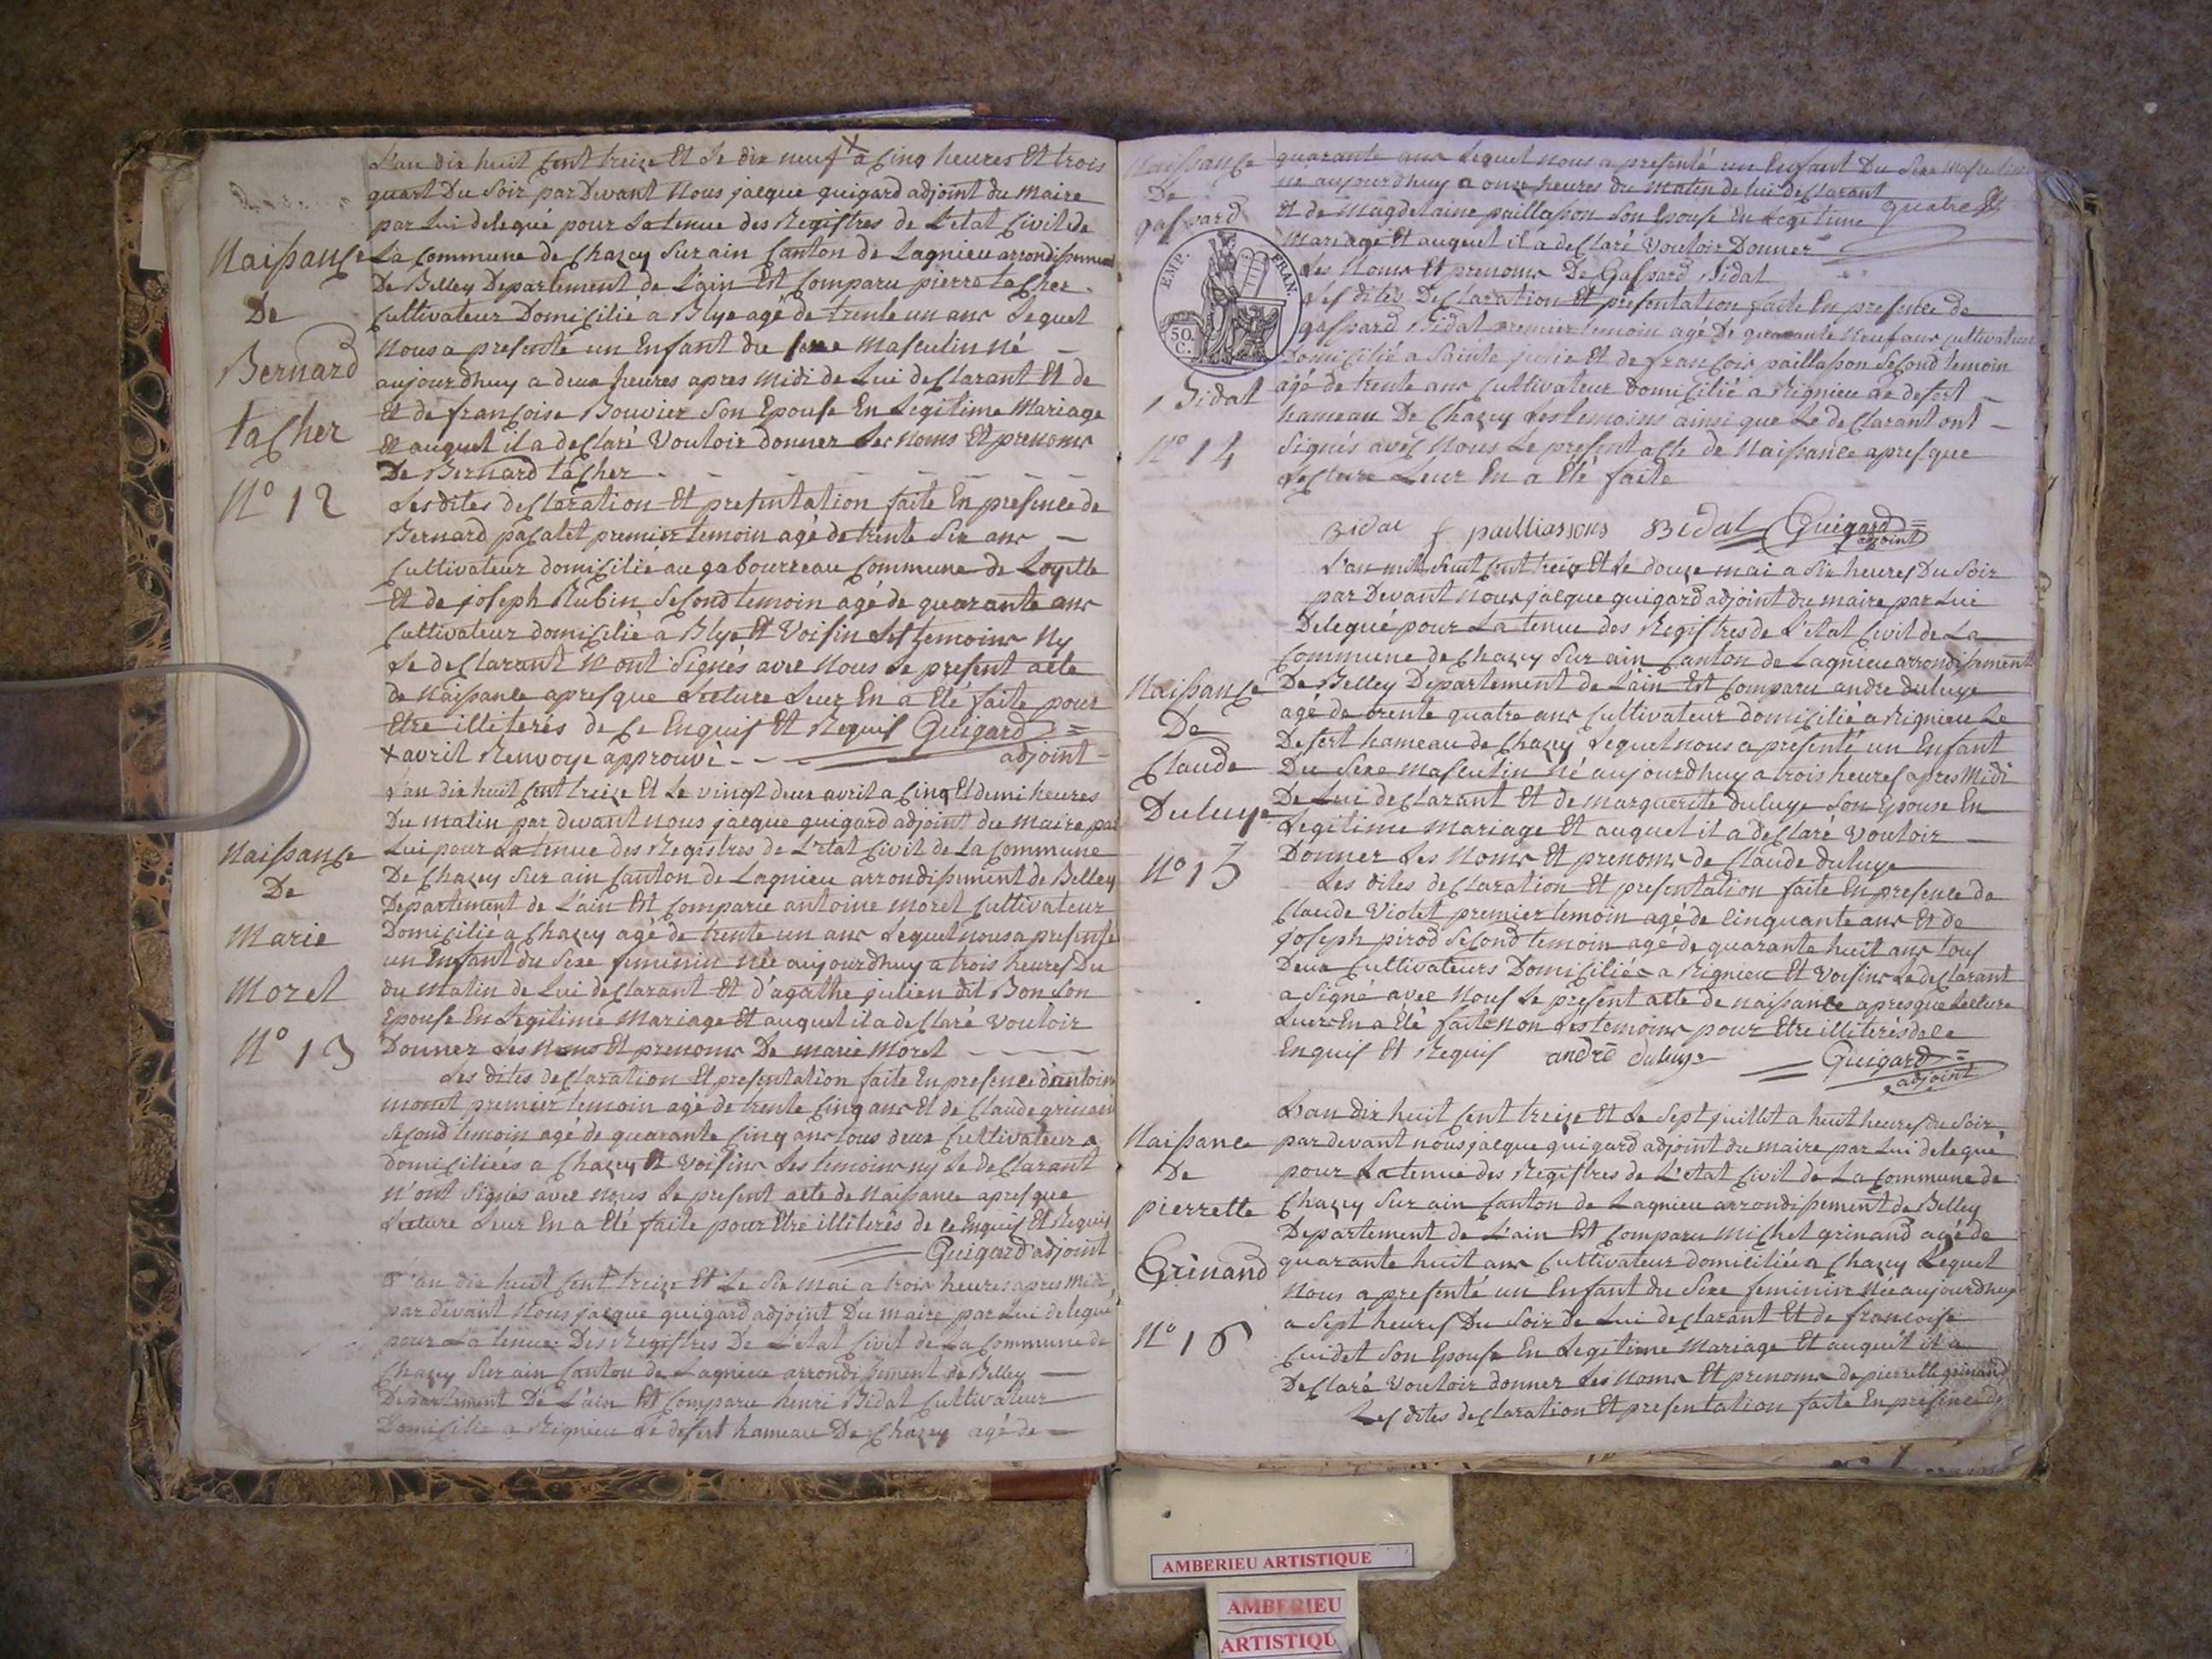 L'an dix huit Cent treize Et Le dix neuf x a Cinq heures Et trois
quart Du Soir par Devant Nous jacque guigard adjoint du Maire
par Lui delegué pour La tenue des Registres de L'etat Civil de
La Commune de Chazey Sur ain Canton de Lagnieu arrondissement
De Belley Departement de L'ain Est Comparu pierre tacher
Cultivateur Domicilié a Blye agé de trente un ans Lequel
Nous a presenté un Enfant du sexe Masculin Né
aujourdhuy a deux heures apres Midi de Lui declarant Et de
Et de françoise Bouvier Son Epouse En Legitime Mariage
Et auquel il a declaré Vouloir donner Les Noms Et prenoms
De Bernard tacher
Naissance
De
Bernard
tacher
N° 12
Lesdites declaration Et presentation faite En presence de
Bernard pacalet premier temoin agé de trente Six ans
Cultivateur domicilié au gabourreau Commune de Loyette
Et de joseph Rubin Second temoin agé de quarante ans
Cultivateur domicilié a Blye Et Voisin Les temoins Ny
Le declarant N'ont Signés avec Nous Le present acte
de Naissance apres que Lecture Leur En a Eté faite pour
Etre illiterés de Ce Enquis Et Requis Guigard
x avril Renvoye approuvé adjoint
L'an dix huit Cent treize Et Le vingt deux avril a Cinq Et demi heures
Du matin par devant nous jacque guigard adjoint du maire par
Lui pour La tenue des Registres de L'etat Civil de La Commune
De Chazey Sur ain Canton de Lagnieu arrondissement de Belley
Departement de L'ain Est Comparu antoine moret Cultivateur
Domicilié a Chazey agé de trente un ans Lequel nous a presenté
un Enfant du Sexe feminin Née aujourdhuy a trois heures Du
du matin de Lui declarant Et d'agathe julien dit Bon Son
Epouse En Legitime Mariage Et auquel il a declaré Vouloir
Donner Les Noms Et prenoms De marie Moret
Naissance
De
Marie
Moret
N° 13
Les dites declaration Et presentation faite En presence d'antoine
monet premier temoin agé de trente Cinq ans Et de Claude
Second temoin agé de quarante Cinq ans tous deux Cultivateurs
domiciliés a Chazey Et Voisins Les temoins ny Le declarant
N'ont Signés avec nous Le present acte de Naissance apres que
Lecture Leur En a Eté faite pour Etre illiterés de ce Enquis Et Requis
Guigard adjoint
L'an dix huit Cent treize Et Le Six Mai a trois heures apres Midi
par devant Nous jacque guigard adjoint Du maire par Lui delegué
pour La tenue Des Registres De L'etat Civil de La Commune de
Chazey Sur ain Canton de Lagnieu arrondissement de Belley
Departement De L'ain Est Comparu henri Bidat Cultivateur
Domicilié a Rignieu Le desert hameau De Chazey agé de
quarante ans Lequel nous a presenté un Enfant Du Sexe Masculin
né aujourdhuy a onze heures du Matin de lui declarant
Et de Magdelaine paillasson Son Epouse En Legitime quatre
Mariage Et auquel il a declaré Vouloir Donner
Les Noms Et prenoms De Gaspard Bidat
Naissance
De
gaspard
EMP. FRAN.
50 C.
Bidat
N° 14
Les dites Declaration Et presentation faite En presence de
gaspard Bidat premier temoin agé De quarante Neuf ans Cultivateur
Domicilié a Sainte julie Et de françois paillasson Second temoin
agé de trente ans Cultivateur Domicilié a Rignieu Le desert
hameau De Chazey Les temoins ainsi que Le declarant ont
Signés avec Nous Le present acte de Naissance apres que
Lecture Leur En a Eté faite
Bidat f paillassons Bidat Guigard
adjoint
L'an mil huit Cent treize Et Le douze mai a Six heures Du Soir
par Devant Nous jacque guigard adjoint du maire par Lui
Delegué pour La tenue des Registres de L'etat Civil de La
Commune de Chazey Sur ain Canton de Lagnieu arrondissement
De Belley Departement de L'ain Est Comparu andre duluye
agé de trente quatre ans Cultivateur domicilié a Rignieu Le
Desert hameau de Chazey Lequel nous a presenté un Enfant
Du Sexe Masculin Né aujourdhuy a trois heures apres Midi
De Lui declarant Et de marguerite duluye Son Epouse En
Legitime Mariage Et auquel il a declaré Vouloir
Donner Les Noms Et prenoms de Claude duluye
Naissance
De
Claude
Duluye
N° 15
Les dites declaration Et presentation faite En presence de
Claude Violet premier temoin agé de Cinquante ans Et de
joseph pirod Second temoin agé de quarante huit ans tous
Deux Cultivateurs Domiciliés a Rignieu Et Voisins Le declarant
a Signé avec Nous Le present acte de naissance apres que Lecture
Leur En a Eté faite non Les temoins pour Etre illiterés de ce
Enquis Et Requis andré duluye Guigard
adjoint
L'an dix huit Cent treize Et Le Sept juillet a huit heures du Soir
par devant nous jacque guigard adjoint du maire par Lui delegué
pour La tenue des Registres de L'etat Civil de La Commune de
Chazey Sur ain Canton de Lagnieu arrondissement de Belley
Departement de L'ain Est Comparu Michel grinand agé de
quarante huit ans Cultivateur domicilié a Chazey Lequel
Nous a presenté un Enfant du Sexe feminin Née aujourdhuy
a Sept heures Du Soir de Lui declarant Et de francoise
Cuidet Son Epouse En Legitime Mariage Et auquel il a
Declaré Vouloir donner Les Noms Et prenoms de pierrette grinand
Naissance
De
pierrette
Grinand
N° 16
Les dites declaration Et presentation faite En presence de
AMBERIEU ARTISTIQUE
AMBERIEU
ARTISTIQU